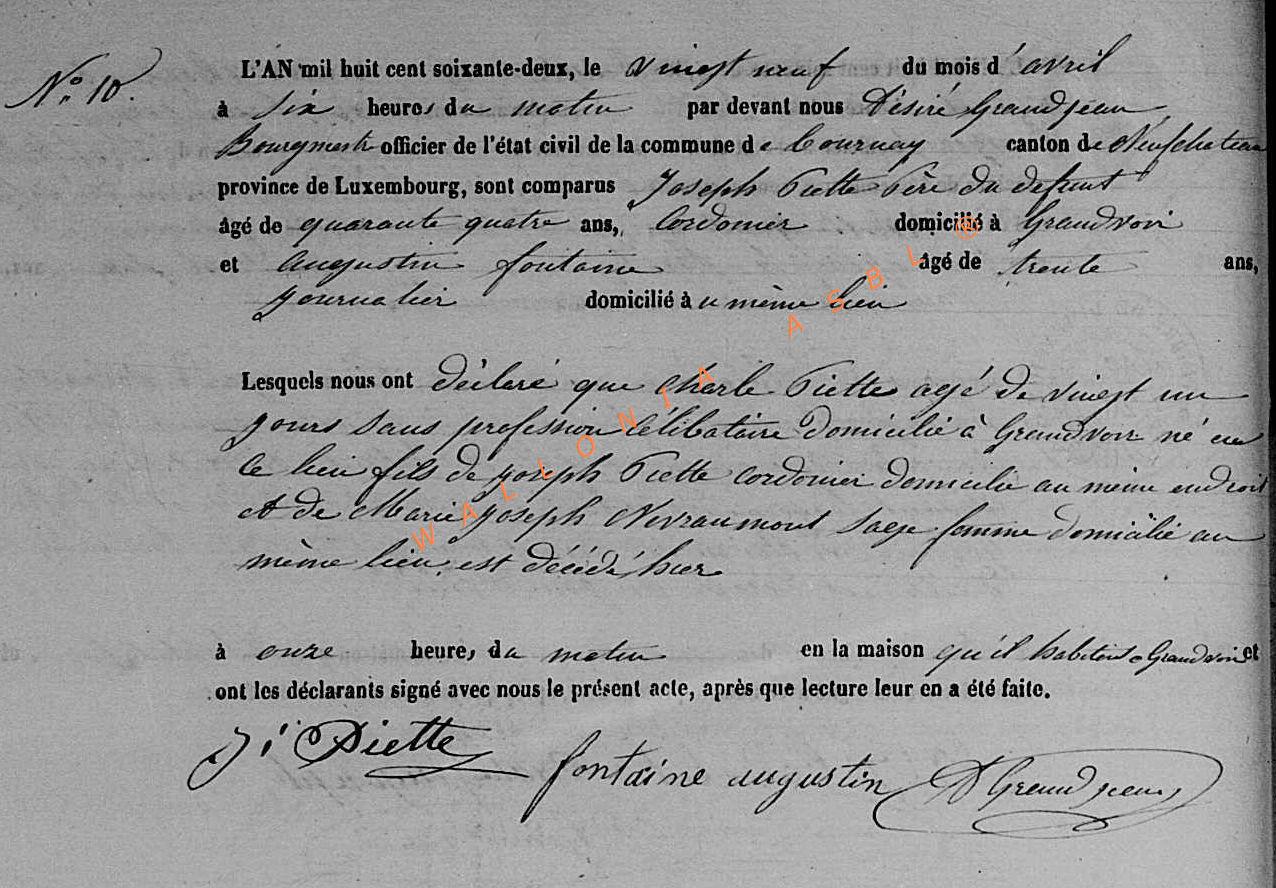 N° 10.
L'AN mil huit cent soixante-deux, le vingt neuf du mois d'avril
à six heures du matin par devant nous Désiré Grandjean
Bourgmestr officier de l'état civil de la commune de Tournay canton de Neufchateau
province de Luxembourg, sont comparus Joseph Piette Père du defunt
âgé de quarante quatre ans, Cordonier domicilié à Grandvoir
et Augustin fontaine âgé de trente ans,
journalier domicilié à u même lieu
Lesquels nous ont déclaré que Charle Piette agé de vingt un
jours sans profession célibataire domicilié à Grandvoir né en
ce lieu fils de joseph Piette cordonier domicilié au même endroit
et de Marie joseph Nevraumont sage femme domicilié au
même lieu est décédé hier
à onze heure, du matin en la maison qu'il habitait a Grandvoir et
ont les déclarants signé avec nous le présent acte, après que lecture leur en a été faite.
J Piette fontaine augustin D Grandjean
WALLONIA ASBL ©